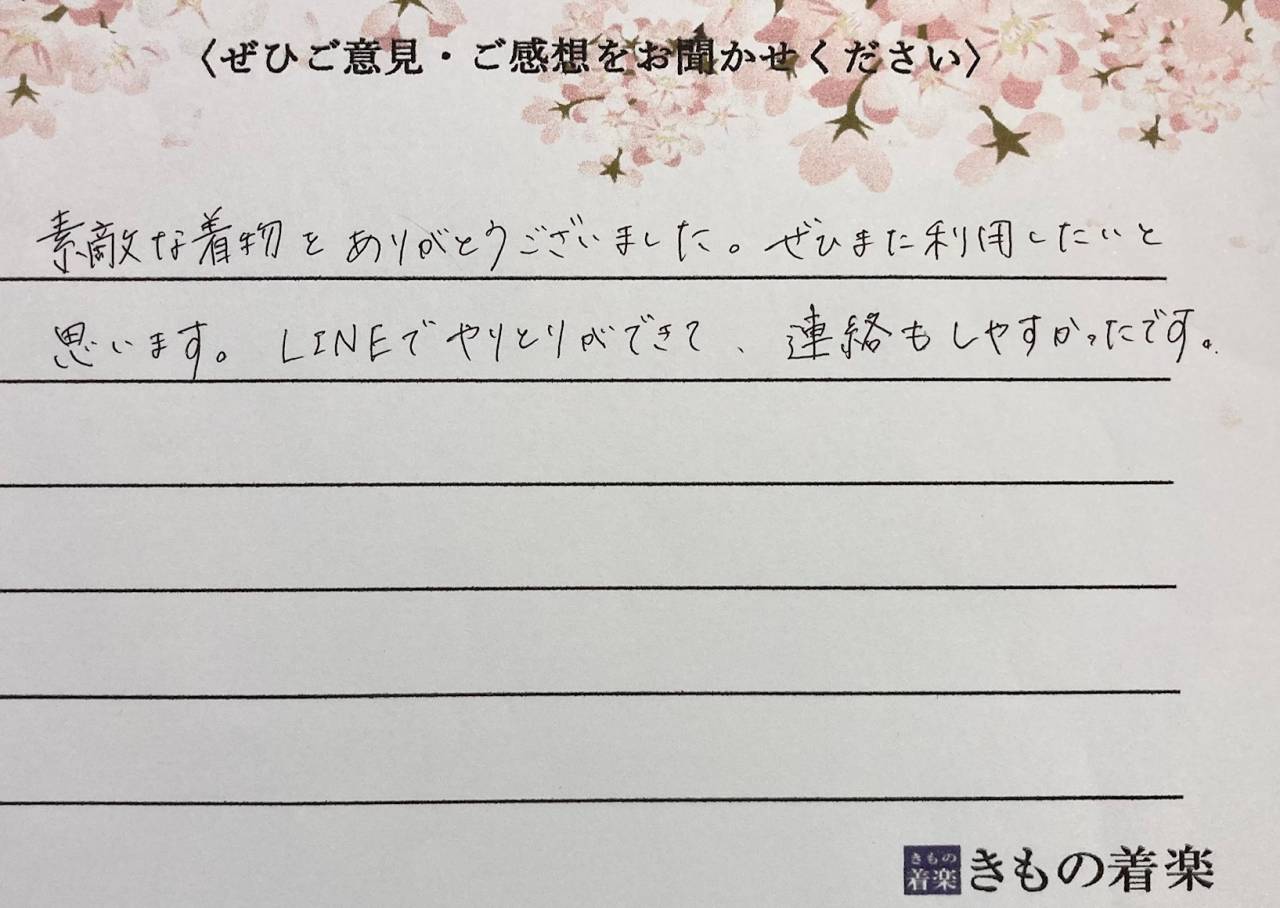 〈ぜひご意見・ご感想をお聞かせください〉
素敵な着物をありがとうございました。ぜひまた利用したいと
思います。LINEでやりとりができて、連絡もしやすかったです。
きもの
着楽
きもの着楽